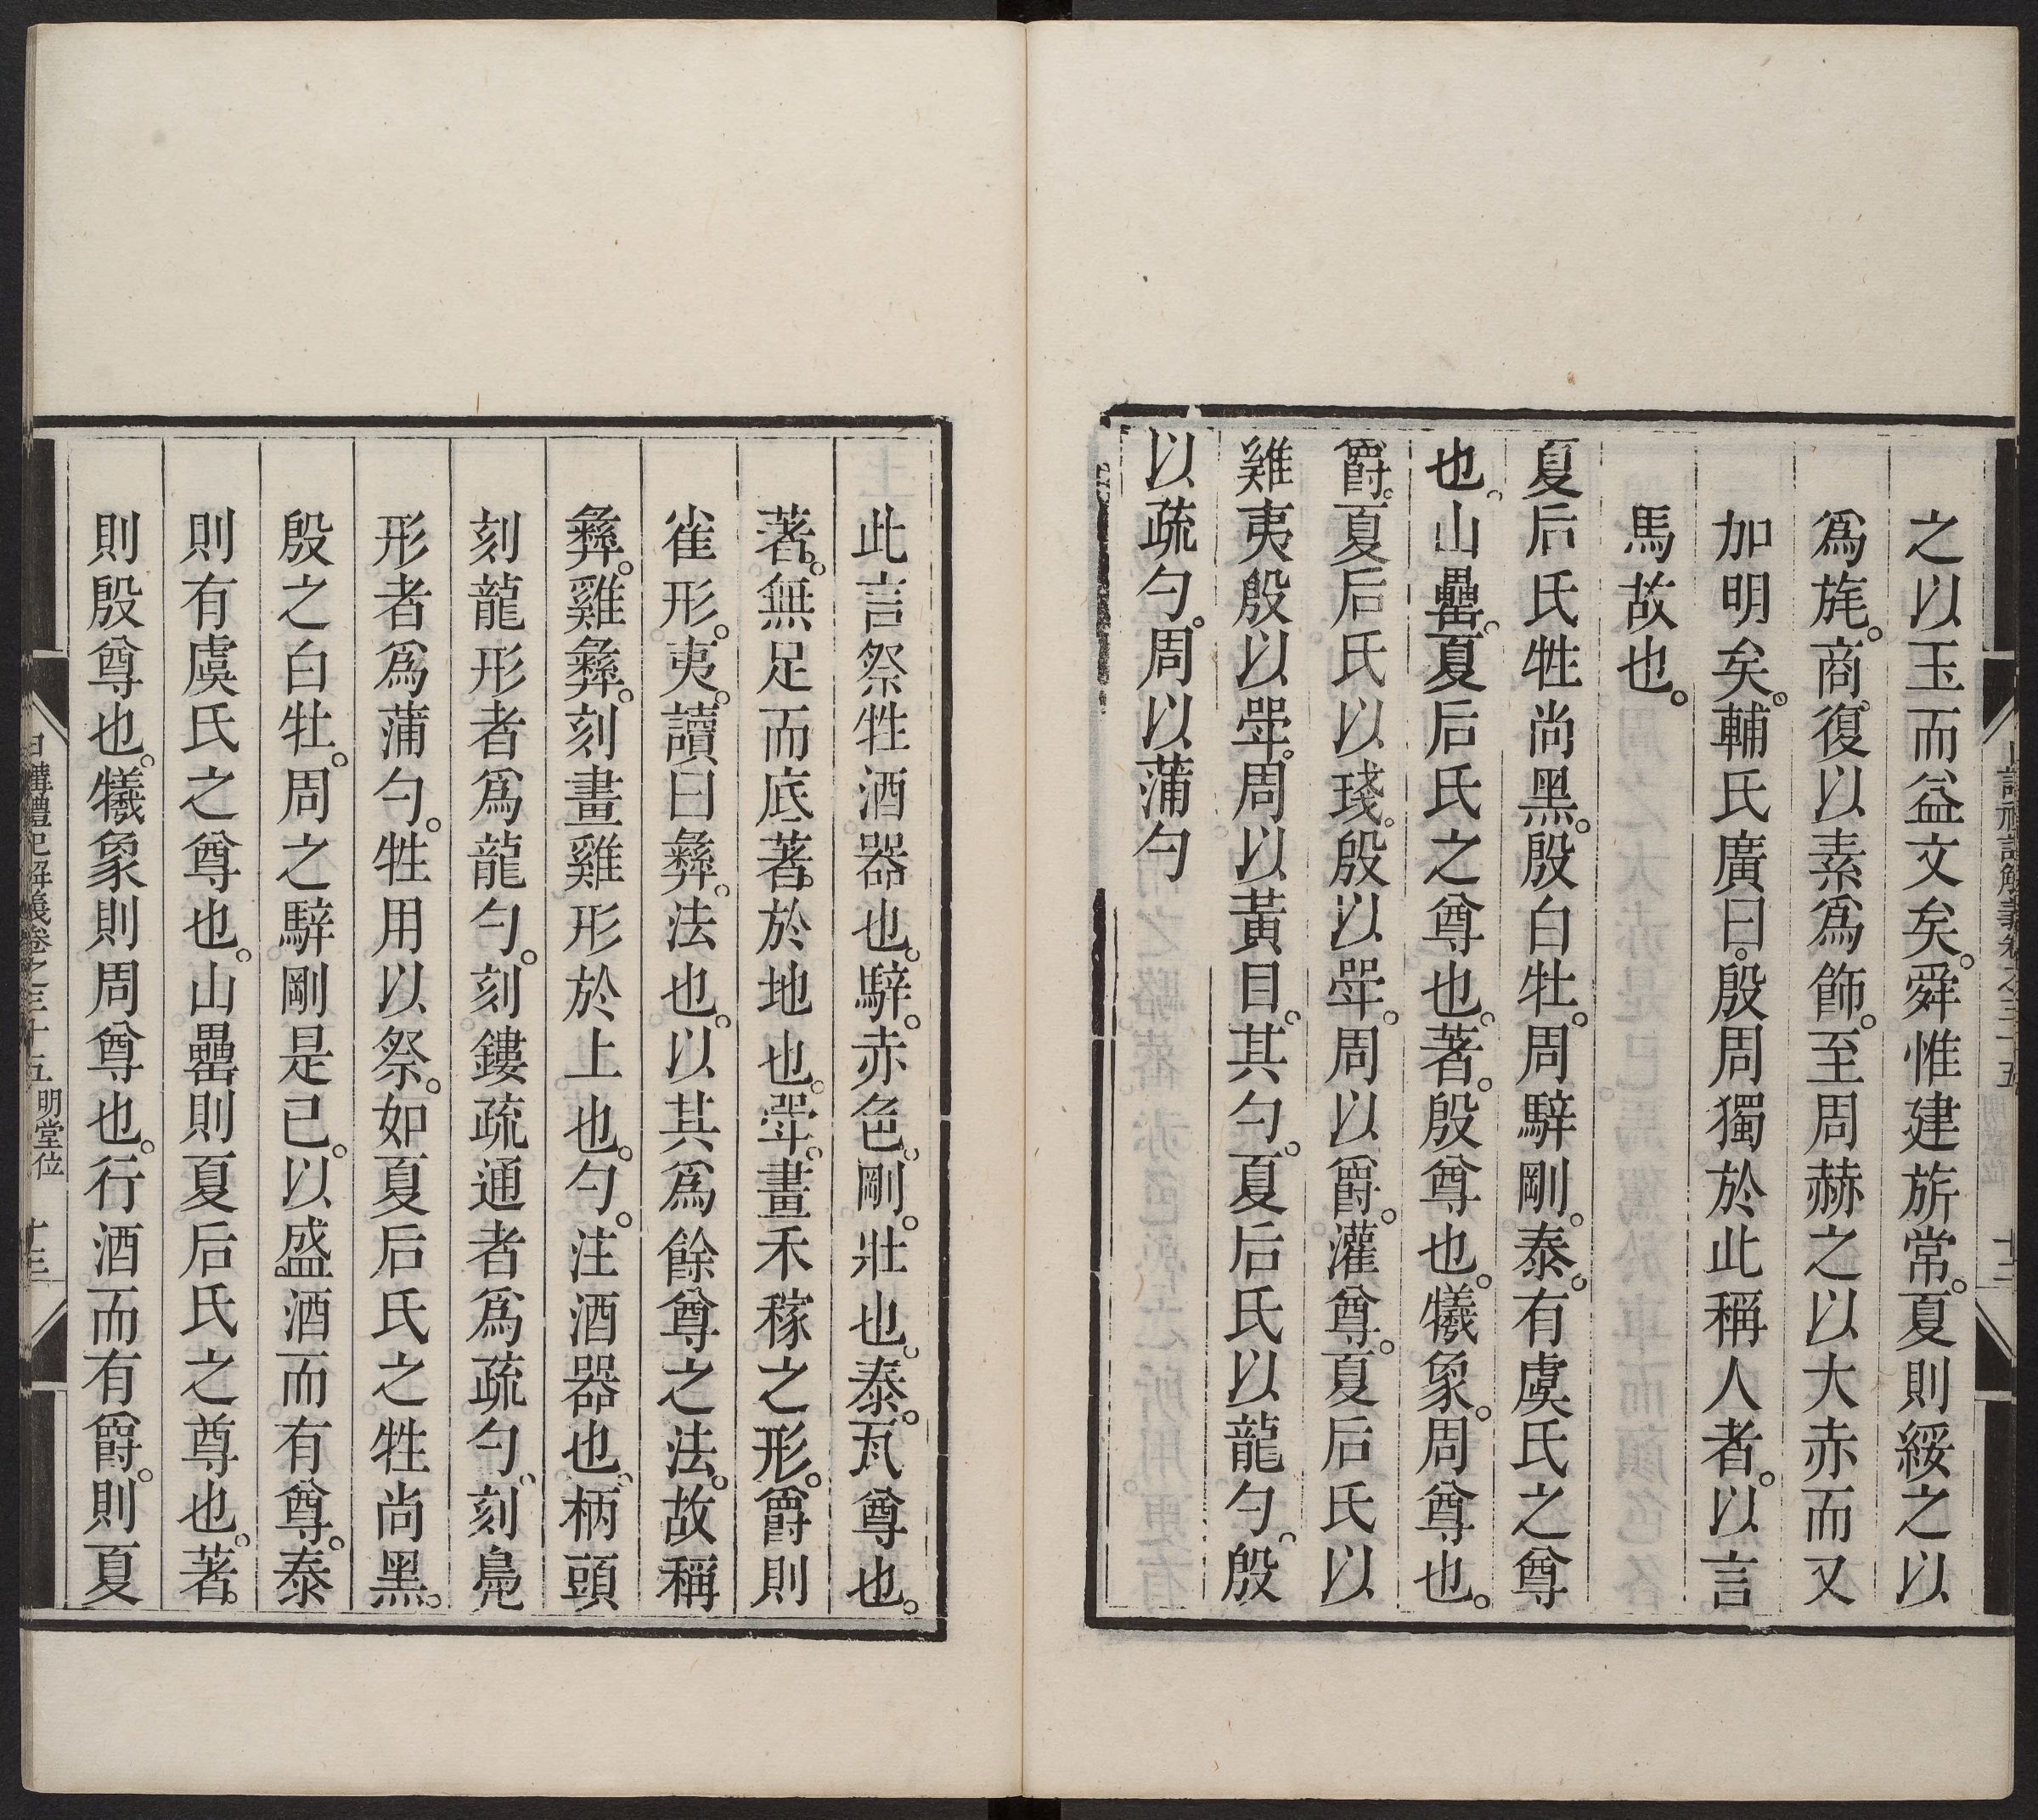 之以玉而益文矣。舜惟建旂常。夏則綏之以
爲旄。商復以素爲飾。至周赫之以大赤而又
加明矣。輔氏廣曰。殷周獨於此稱人者。以言
馬故也。
夏后氏牲尚黑。殷白牡。周騂剛。泰。有虞氏之尊
也。山罍。夏后氏之尊也。著。殷尊也。犧象。周尊也。
爵。夏后氏以琖。殷以斝。周以爵。灌尊。夏后氏以
雞夷殷以斝。周以黃目。其勺。夏后氏以龍勺。殷
以疏勺。周以蒲勺
此言祭牲酒器也。騂。赤色。剛。壯也。泰。瓦尊也。
著。無足而底著。於地也。斝。畫禾稼之形。爵則
雀形。夷。讀曰彝。法也。以其爲餘尊之法。故稱
彝。雞彝。刻畫雞形於上也。勺。注酒器也。柄頭
刻龍形者爲龍勺。刻鏤疏通者爲疏勺。刻鳧
形者爲蒲勺。牲用以祭。如夏后氏之牲尚黑。
殷之白牡。周之騂剛是已。以盛酒而有尊。泰
則有虞氏之尊也。山罍則夏后氏之尊也。著。
則殷尊也。犧象則周尊也。行酒而有爵。則夏
日講禮記解義卷之三十五 明堂位 十三